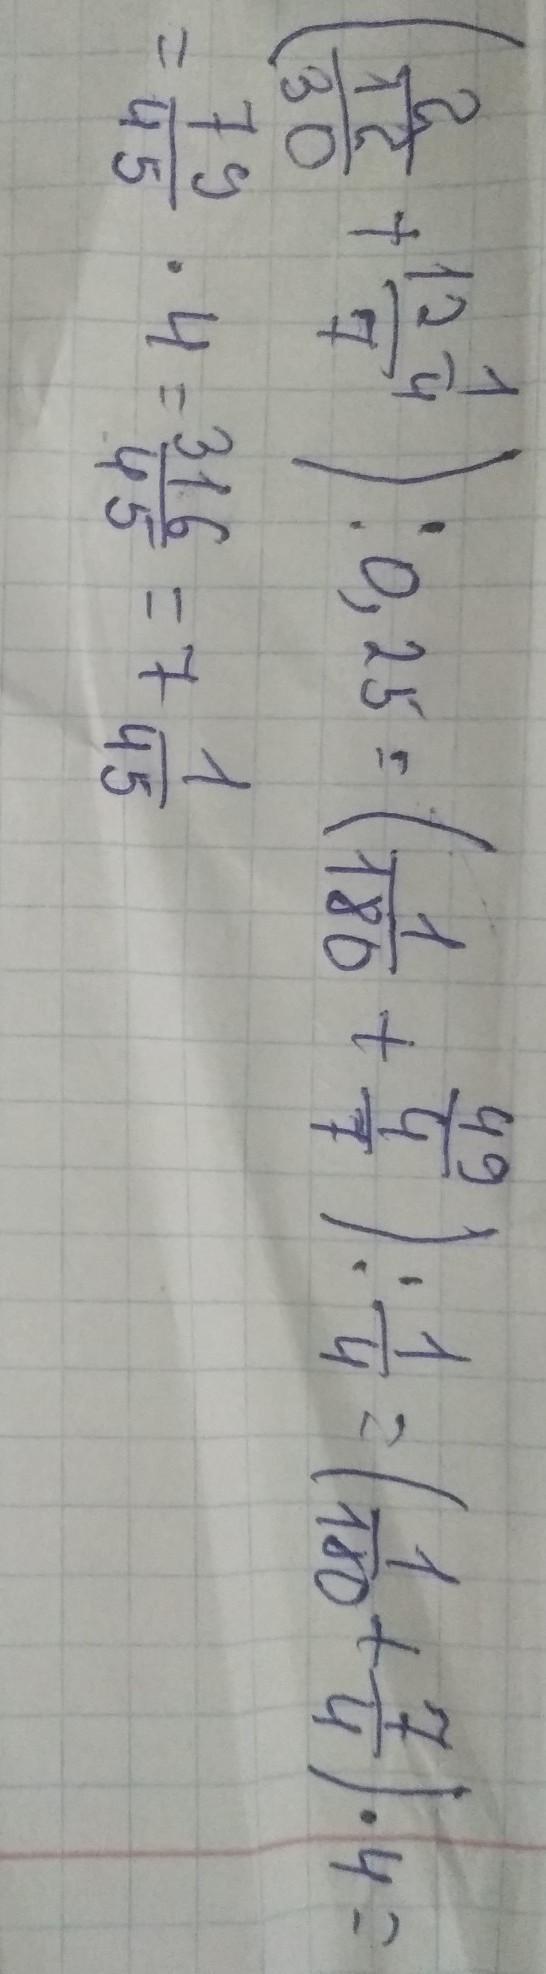 (2/12/30 + 12 1/4/7) : 0,25 = (1/180 + 49/4/7) : 1/4 = (1/180 + 7/4) · 4 =
= 79/45 · 4 = 316/45 = 7 1/45